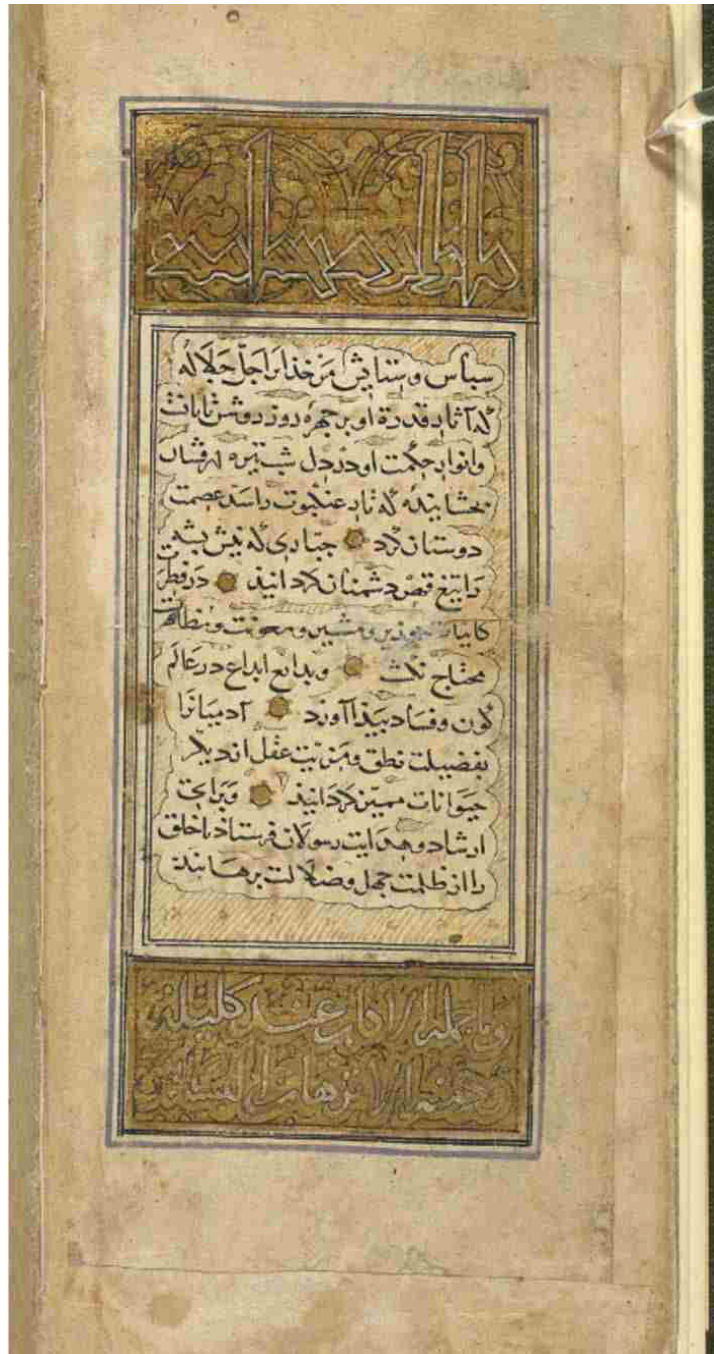 سباس و ستایش مر خذایرا جل جلاله
که آثار قدرة او بر جهره روز روشن تابانست
وانوار حکمت او در دل شب تیره درفشان
بخشاینده که تار عنکبوت را سد عصمت
دوستان کرد جباری که نیش بشه
را تیغ قهر دشمنان کردانید در فطرت
کاینات بوزیر و مشیر و معونت و مظاهرت
محتاج نکشت و بدایع ابداع در عالم
کون و فساد بیذا آورد آدمیانرا
بفضیلت نطق و مزیت عقل از دیکر
حیوانات ممیز کردانید و برای
ارشاد و هدایت رسولان فرستاد تا خلق
را از ظلمت جهل و ضلالت برهانیدند
کلیله
ودمنه